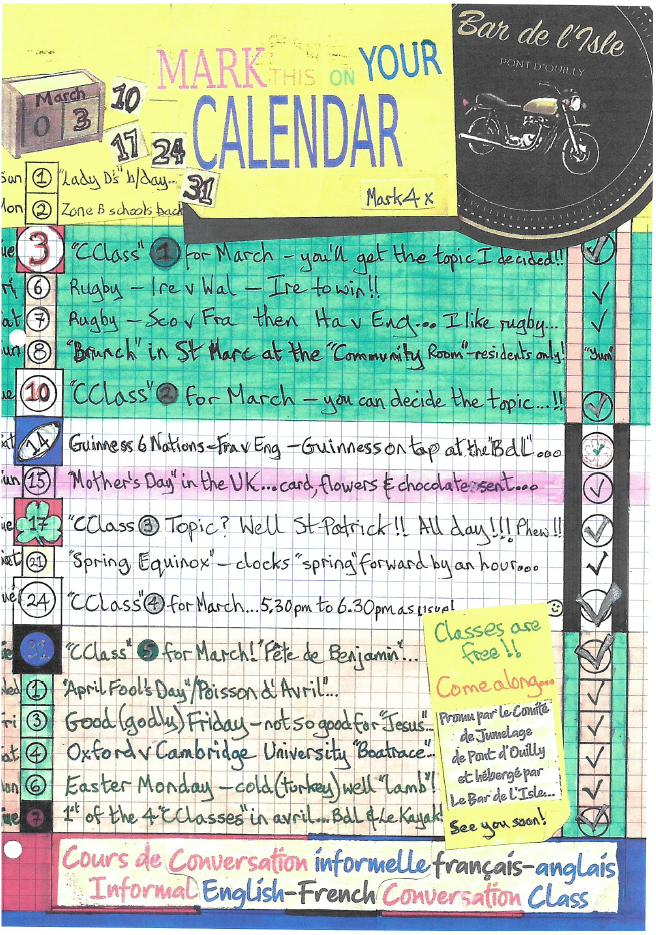 Bar de l'Isle
PONT D'OUILLY
MARK THIS ON YOUR
CALENDAR
March
0 3
10
17 24
31
Mark 4 x
Sun 1 "Lady D's" b/day...
Mon 2 Zone B schools back
ue 3 "CClass" 1 for March - you'll get the topic I decided!!
ri 6 Rugby - Ire v Wal - Ire to win!!
at 7 Rugby - Sco v Fra then Ita v Eng... I like rugby...
un 8 "Brunch" in St Marc at the "Community Room"-residents only! "Yum"
ue 10 "CClass" 2 for March - you can decide the topic...!!
at 14 Guinness 6 Nations - Fra v Eng - Guinness on tap at the "BdI"...
un 15 "Mother's Day" in the UK... card, flowers & chocolate sent...
ue 17 "CClass 3 Topic? Well St-Patrick!! All day!!! Phew!!
at 21 "Spring Equinox" - clocks "spring" forward by an hour...
ue 24 "CClass" 4 for March... 5.30pm to 6.30pm as usual
ue 31 "CClass" 5 for March! "Fête de Benjamin"...
Wed 1 "April Fool's Day"/Poisson d'Avril"...
ri 3 Good (godly) Friday - not so good for "Jesus"...
at 4 Oxford v Cambridge University "Boatrace"...
on 6 Easter Monday - cold (turkey) well "lamb"!
ue 7 1st of the 4 "CClasses" in avril... BdI & Le Kayak!
Classes are
free!!
Come along...
Promu par le Comité
de Jumelage
de Pont d'Ouilly
et hébergé par
Le Bar de L'Isle...
See you soon!
Cours de Conversation informelle français-anglais
Informal English-French Conversation Class